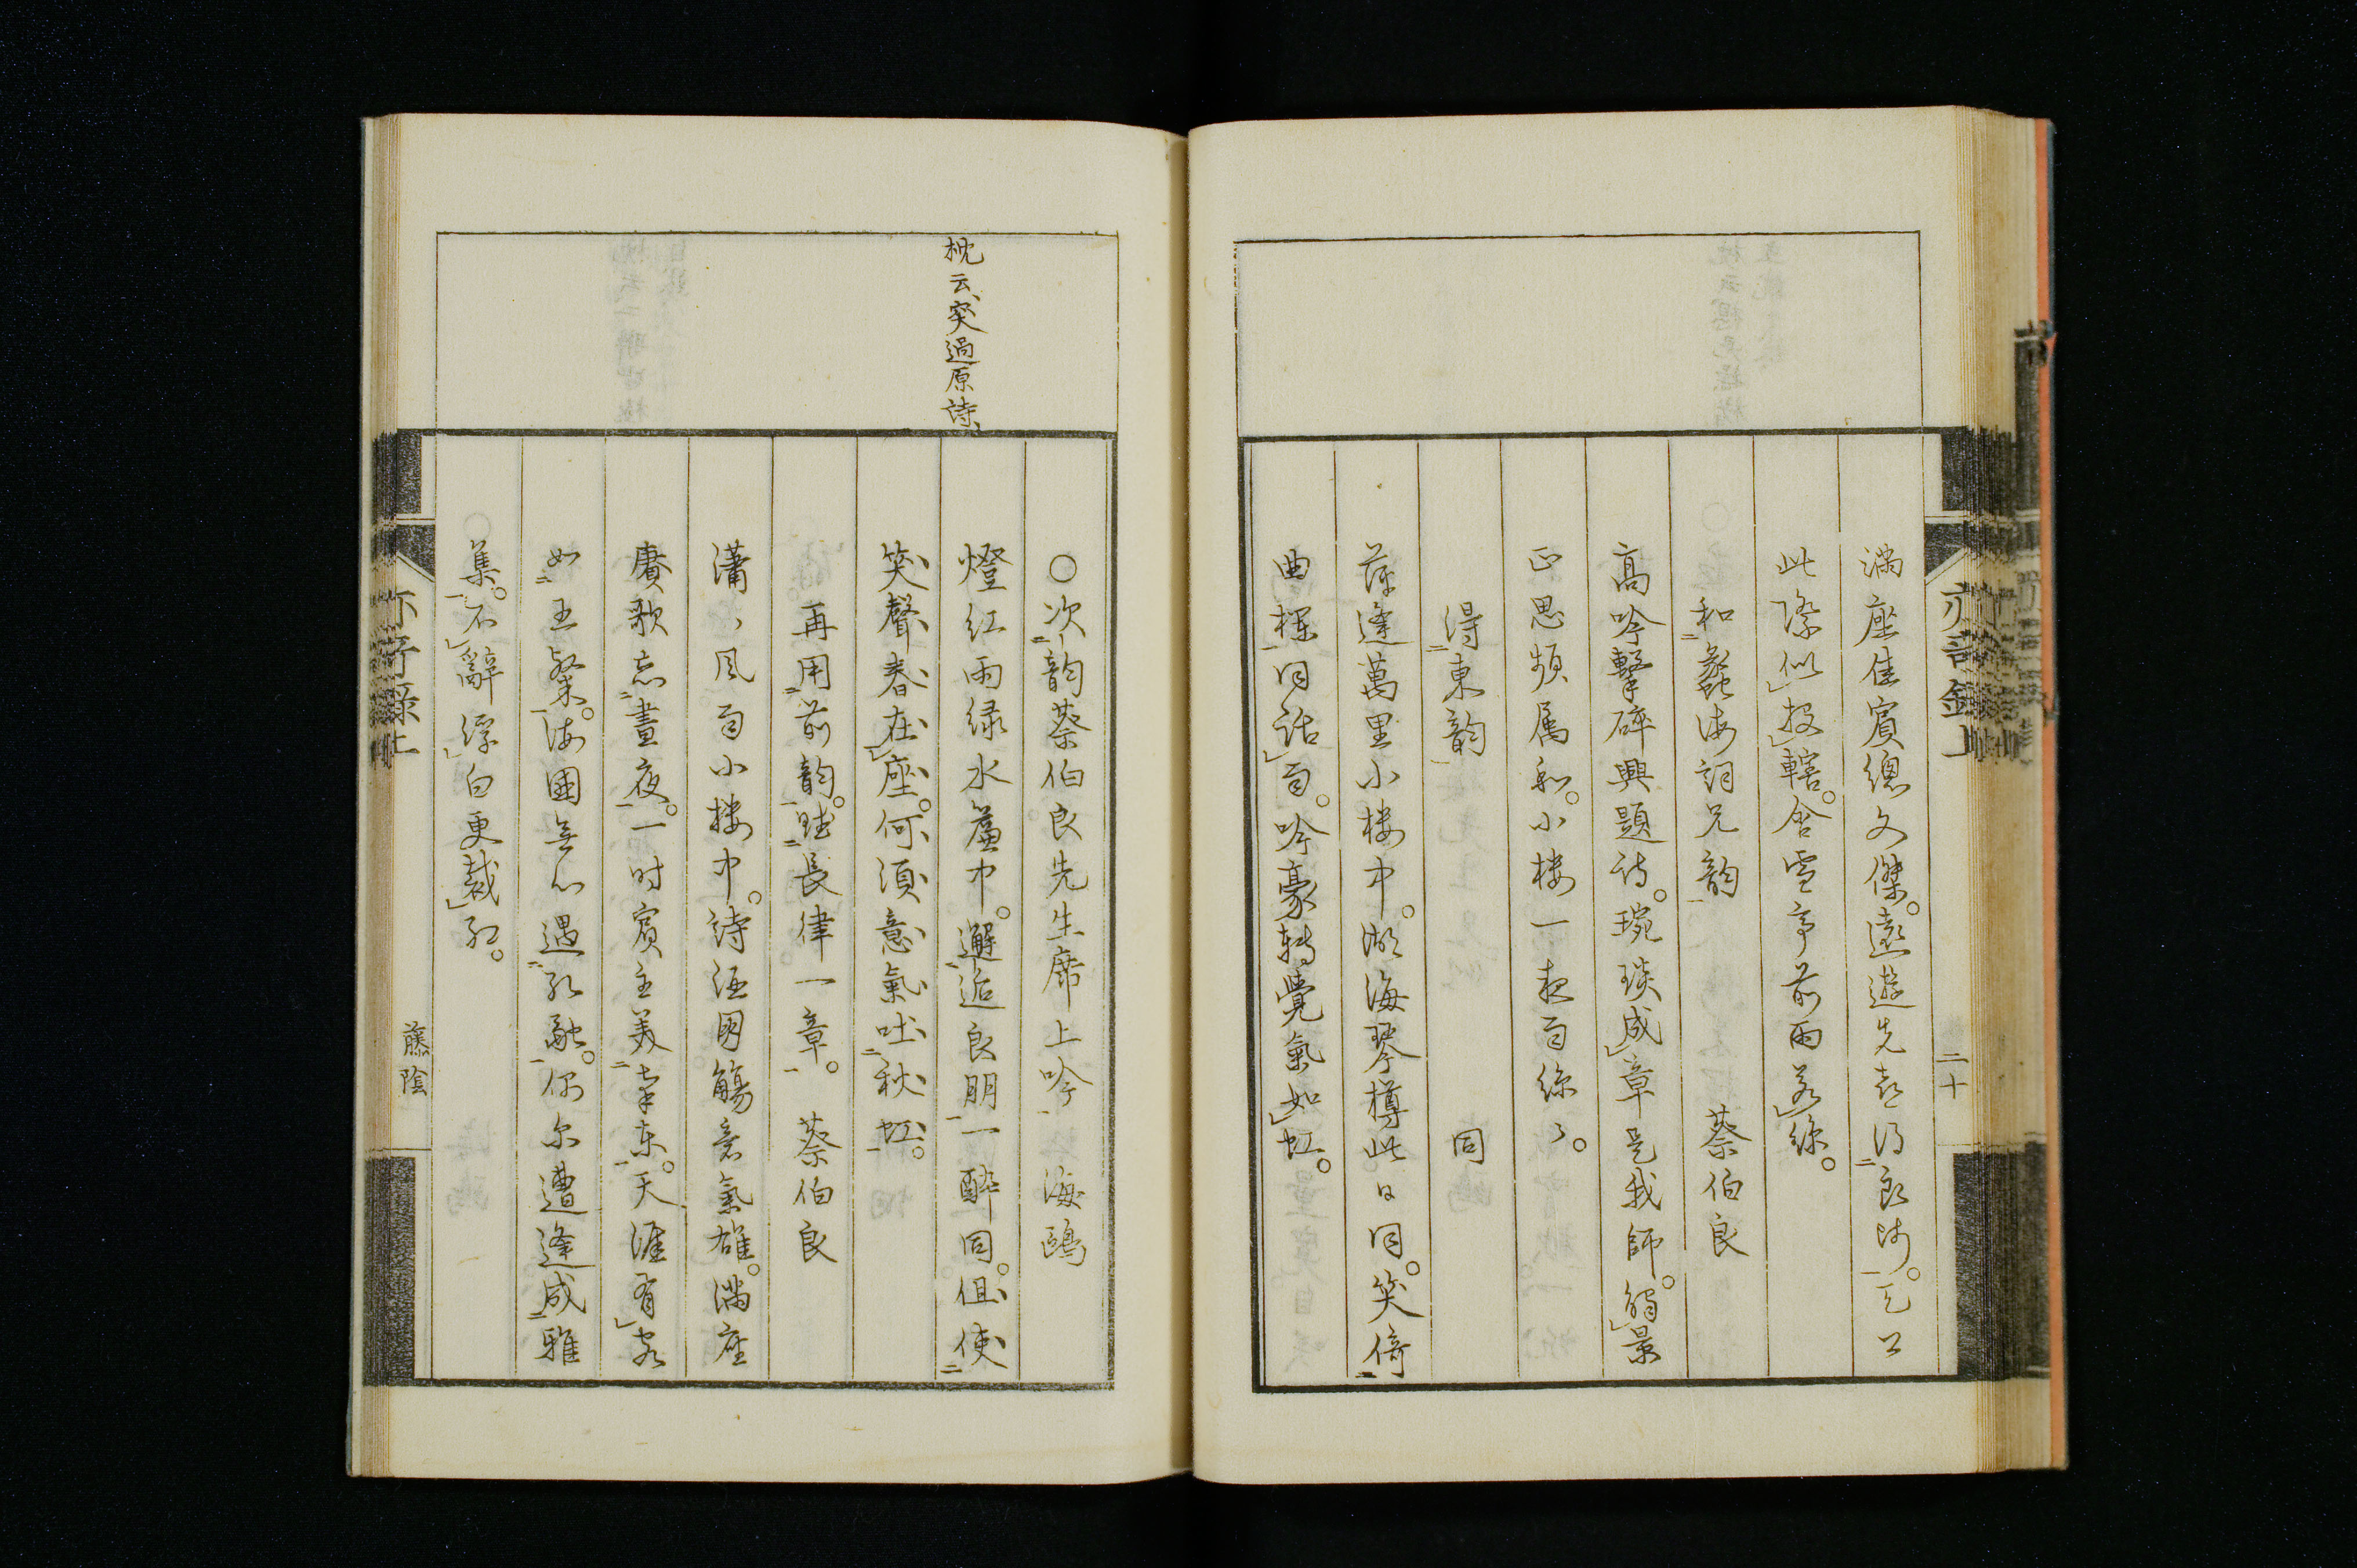 滿座佳賓總文傑。遠遊先喜得良時。
此際似投轄。含雪亭前雨若絲。
和蠡海詞兄韵 蔡伯良
高吟擊碎興題詩。琬琰成章是我師。觸景
正思頻属和。小樓一夜雨絲々。
得東韵 同
萍逢萬里小樓中。湖海琴樽此日同。笑倚
曲欄同話雨。吟豪轉覺氣如虹。
二十
枕云、突過原詩、
○次韵蔡伯良先生席上吟 海鷗
燈紅雨緑水簾中。邂逅良朋一醉同。但使
笑聲春在座。何須意氣吐秋虹。
再用前韵。賦長律一章。 蔡伯良
瀟々風雨小樓中。詩酒圍觴意氣雄。滿座
賡歌忘晝夜。一時賓主美東。天涯有客
如王粲。海國無心遇孔融。偶尔遭逢成雅
集。不辭浮白更裁紅。
藤陰